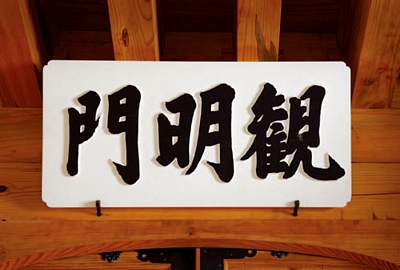 観明門